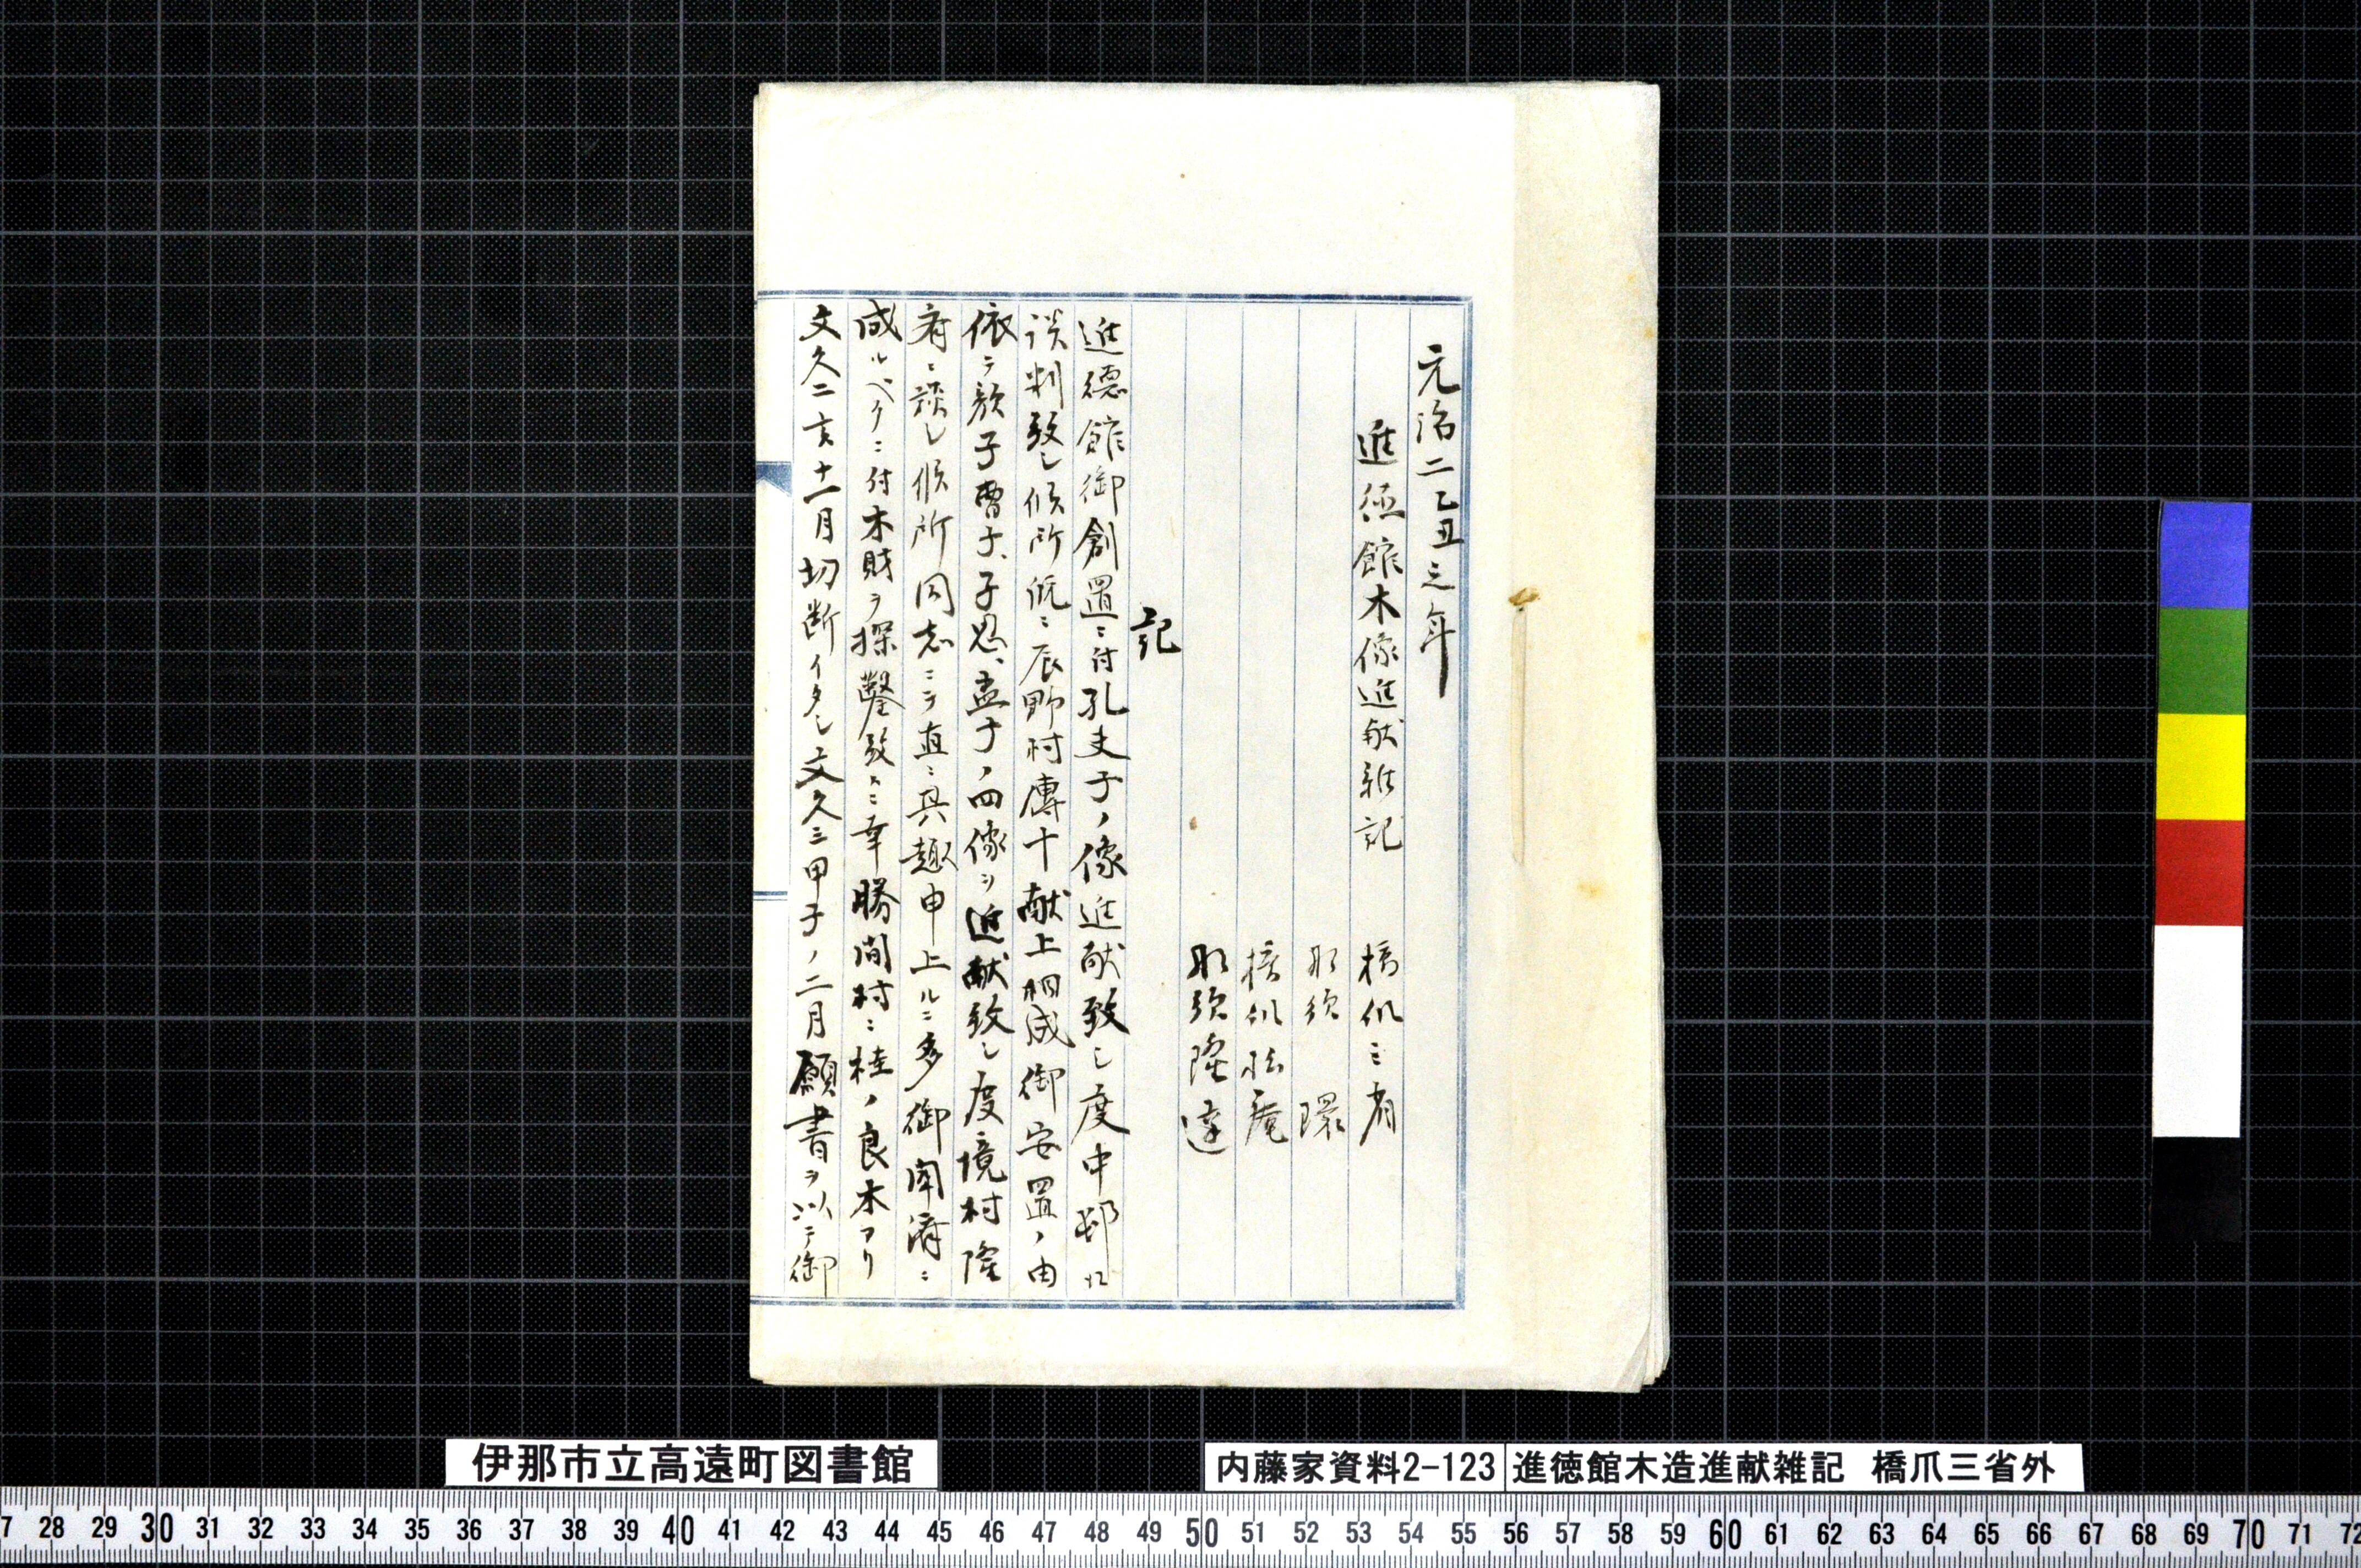 元治二乙丑三年
進徳館木像進献雑記
橋爪三省
那須環
橋爪松庵
那須隆達
記
進德館御創置ニ付孔夫子ノ像進献致シ度中邨ニ
談判致シ候所既ニ辰野村傳十献上相成御安置ノ由
依テ顔子曽子、子思、孟子ノ四像ヲ進献致シ度境村隆
斉ニ談シ候所同志ニテ直ニ其趣申上ルニ多御聞済ニ
成ルベクニ付木財ヲ探鑿致スニ幸勝間村ニ桂ノ良木アリ
文久二亥十一月切断イタシ文久三甲子ノ二月願書ヲ以テ御
伊那市立高遠町図書館
内藤家資料2-123
進徳館木造進献雑記 橋爪三省外
27 28 29 30 31 32 33 34 35 36 37 38 39 40 41 42 43 44 45 46 47 48 49 50 51 52 53 54 55 56 57 58 59 60 61 62 63 64 65 66 67 68 69 70 71 72